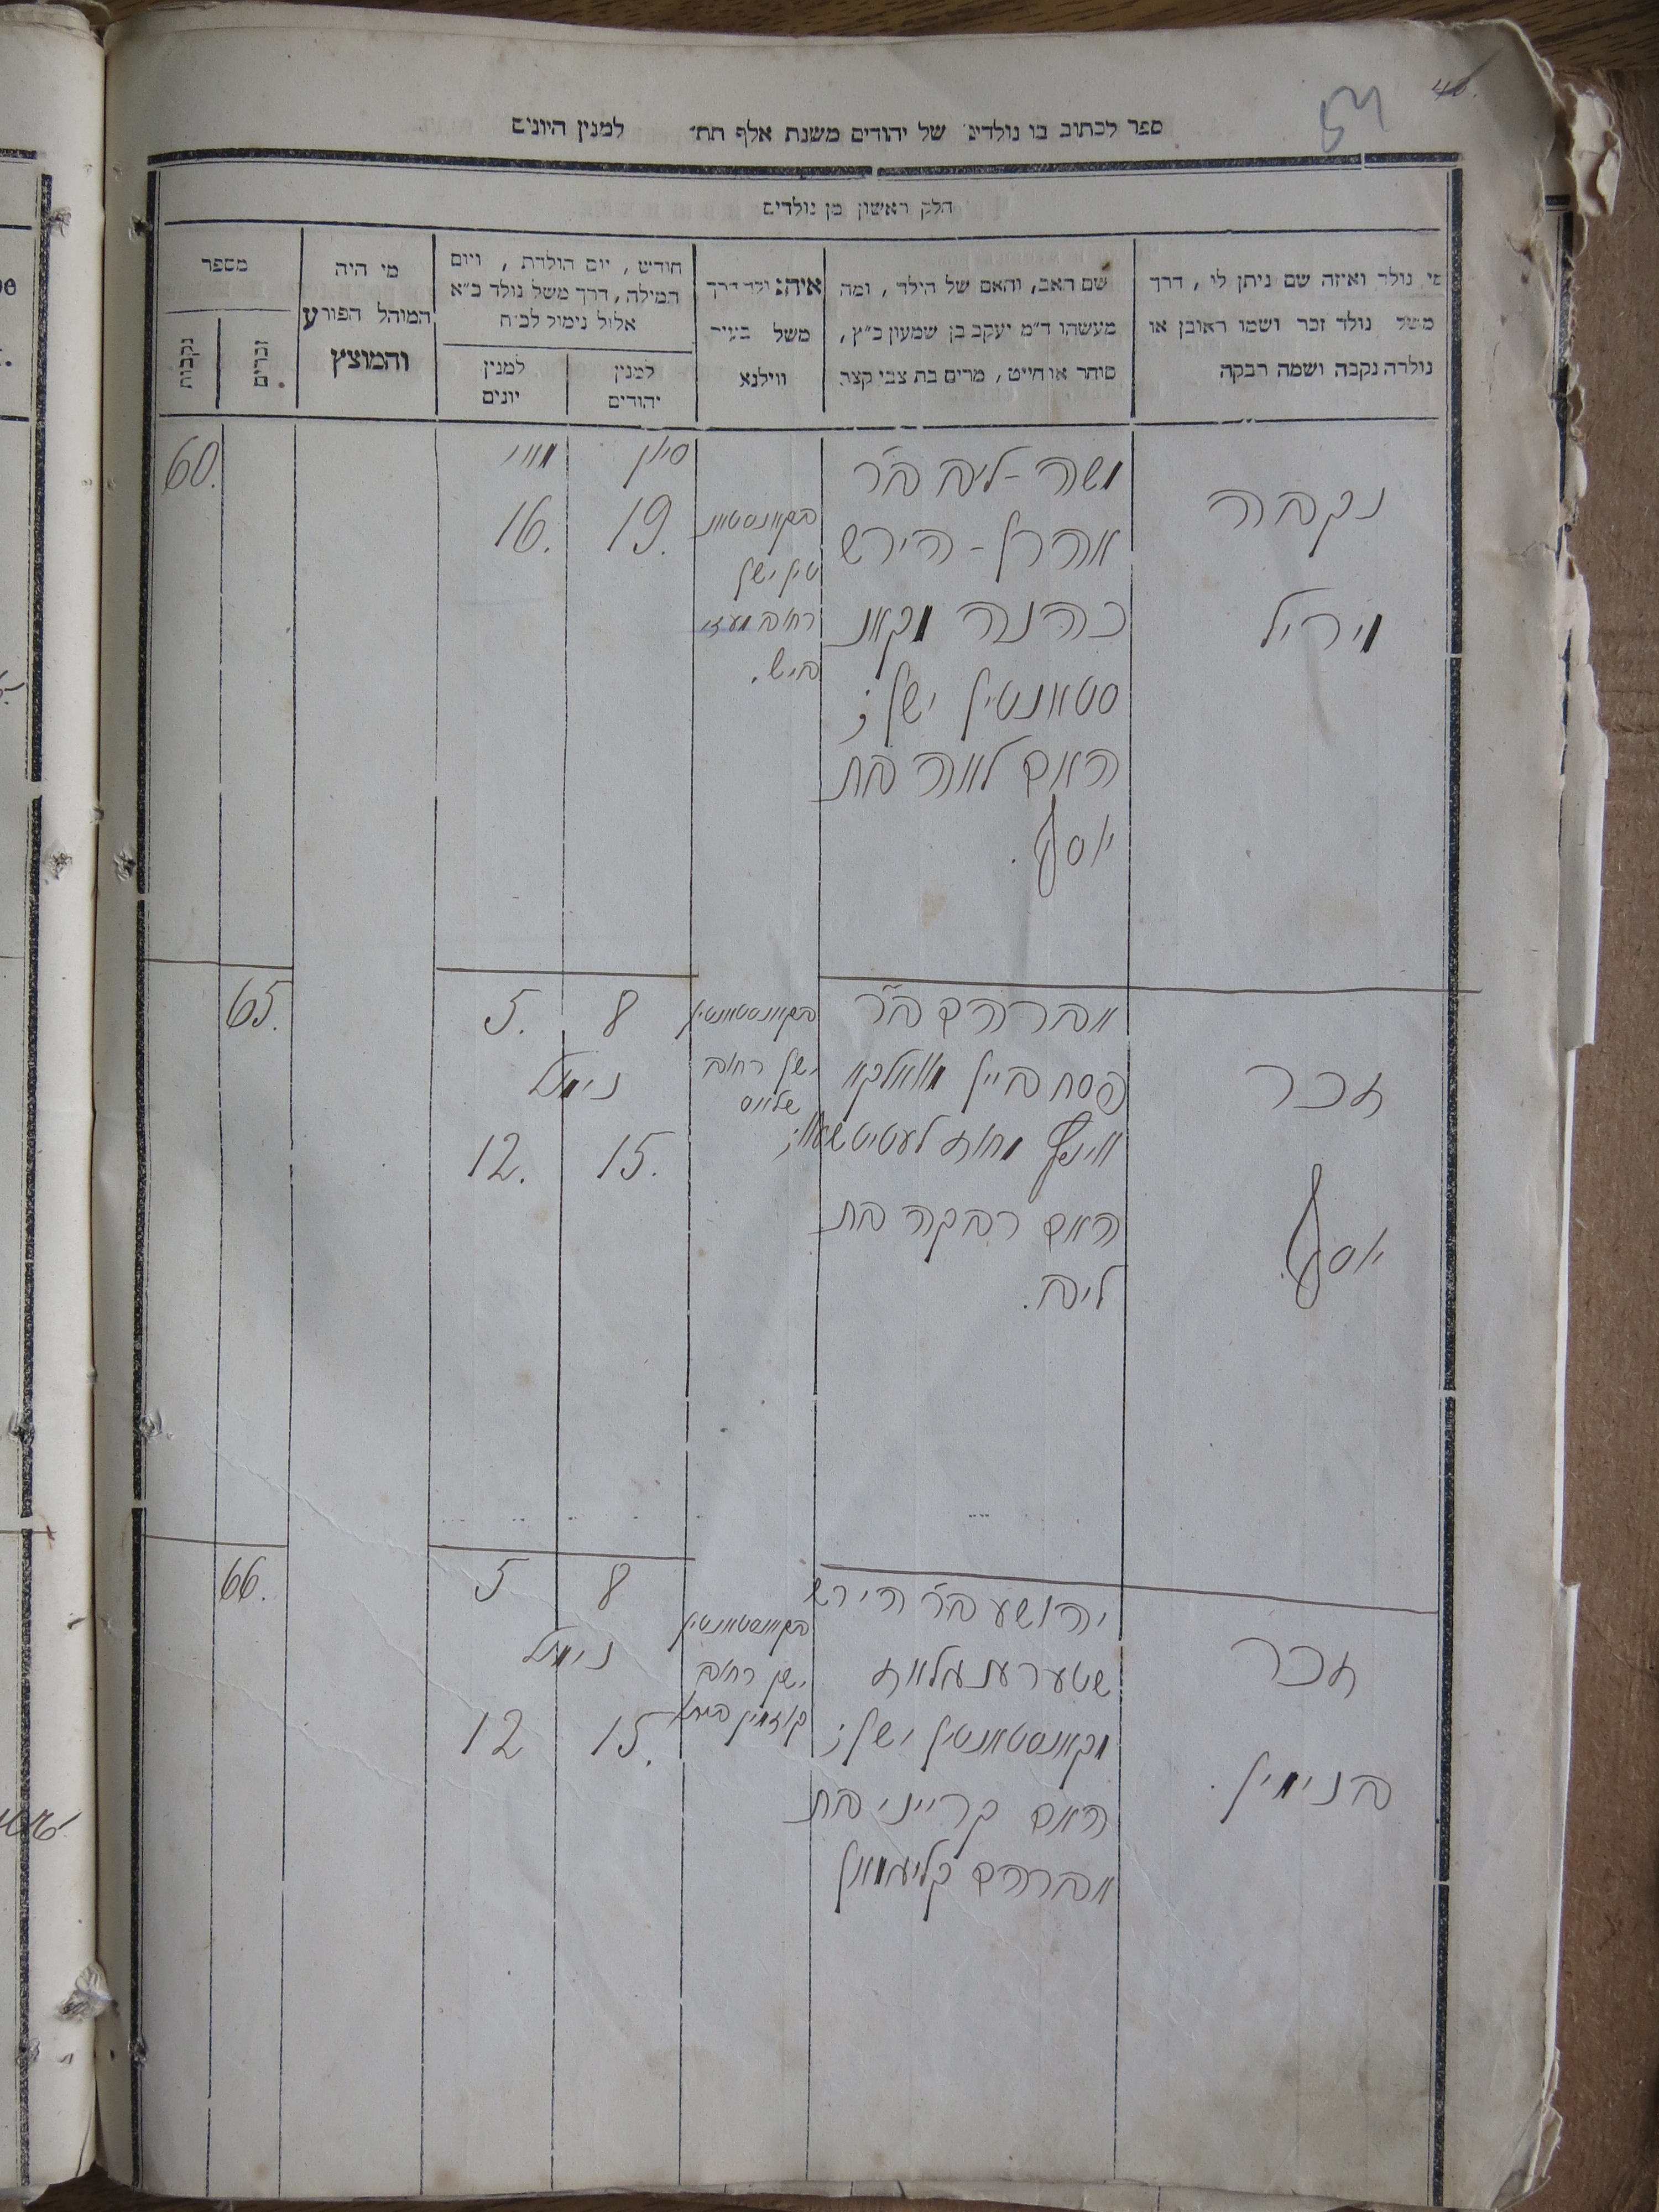 40.
ספר לכתוב בו נולדים של יהודים משנת אלף תת׳ למנין היונים
חלק ראשון מן נולדים
מי נולד ואיזה שם ניתן לו, דרך
משל נולד זכר ושמו ראובן או
נולדה נקבה ושמה רבקה
שם האב, והאם של הילד, ומה
מעשהו ד״מ יעקב בן שמעון כ״ץ,
סוחר או חייט, מרים בת צבי קצב
איה נולד דרך
משל בעיר
ווילנא
חודש, יום הולדת, ויום
המילה, דרך משל נולד כ״א
אלול נימול לכ״ח
למנין
יהודים
למנין
יונים
מי היה
המוהל הפורע
והמוצץ
מספר
זכרים
נקבות
נקבה
מירל
משה-ליב ב״ר
אהרן-הירש
כהנה מקאנ
סטאנטין ישן;
האם לאה בת
יוסף.
בקאנסטאנ
טין ישן
רחוב
סיון
19.
מאי
16.
60.
זכר
יוסף.
אברהם ב״ר
פסח בייל
האם רבקה בת
ליב.
בקאנסטאנטין
ישן רחוב
8
5.
נימול
15.
12.
65.
זכר
בנימין.
יהושע ב״ר הירש
מקאנסטאנטין ישן;
האם קרייני בת
אברהם קליגמאן
בקאנסטאנטין
ישן רחוב
8
5
נימול
15.
12
66.